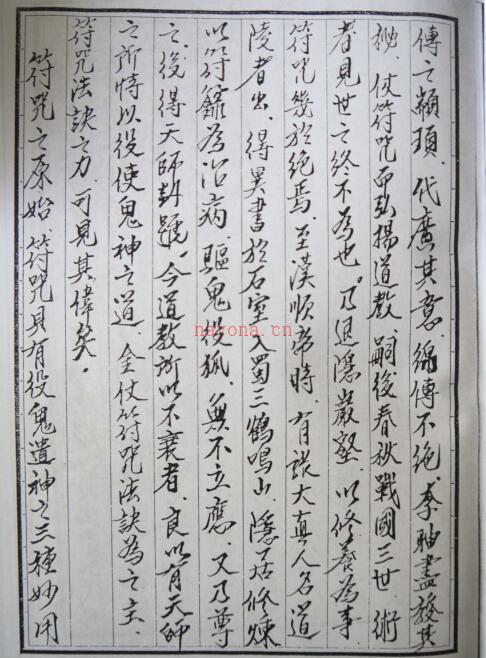 傳之顓頊、代廣其意、綿傳不絕、李聃盡發其
秘、仗符咒而弘揚道教、嗣後春秋戰國三世術
者見世之終不為也。乃退隱巖壑、以修養為事
符咒幾於絕焉、至漢順帝時、有張大真人名道
陵者出、得異書於石室入蜀三鶴鳴山、隱居修煉
以符籙為治病、驅鬼役狐、無不立應、又乃尊
之、後得天師封號、今道教所以不衰者、良以有天師
之所恃以役使鬼神之道、全仗符咒法訣為之主、
符咒法訣之力、可見其偉矣。
符咒之原始、符咒具有役鬼遣神之三種妙用
nayona.cn